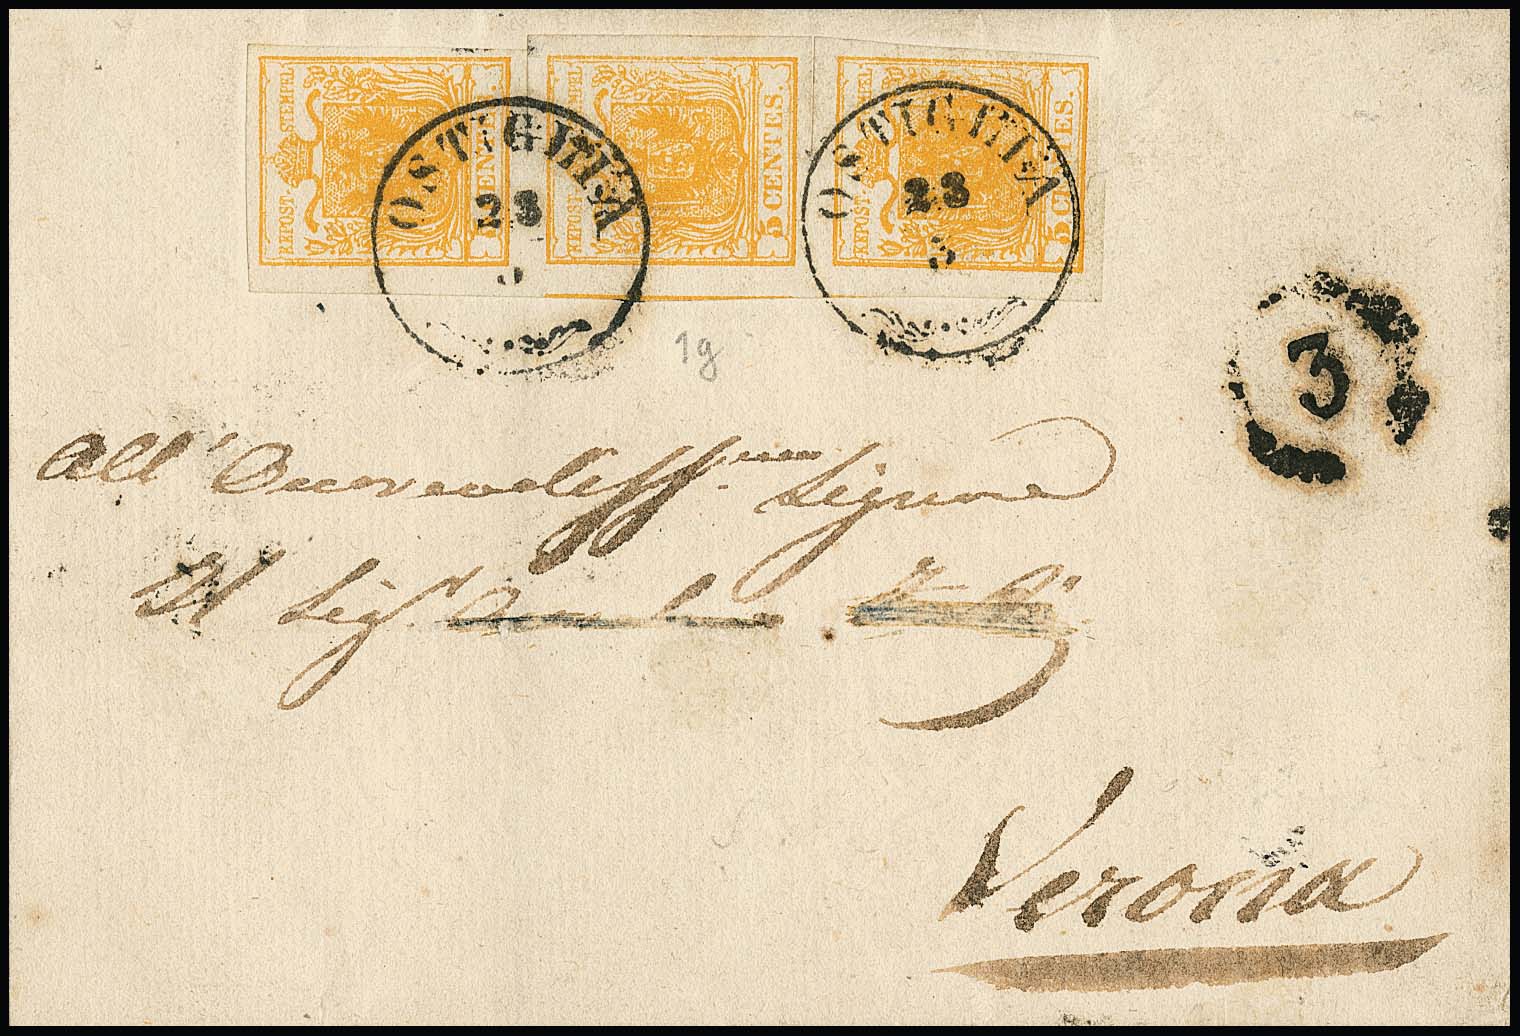 KKPOST-STEMPEL
5 CENTES.
KKPOST-STEMPEL
5 CENTES.
KKPOST-STEMPEL
5 CENTES.
OSTIGLIA
23
3
OSTIGLIA
23
3
3
1g
All' Ornatiss.mo Signore
Il Sig.r
Verona